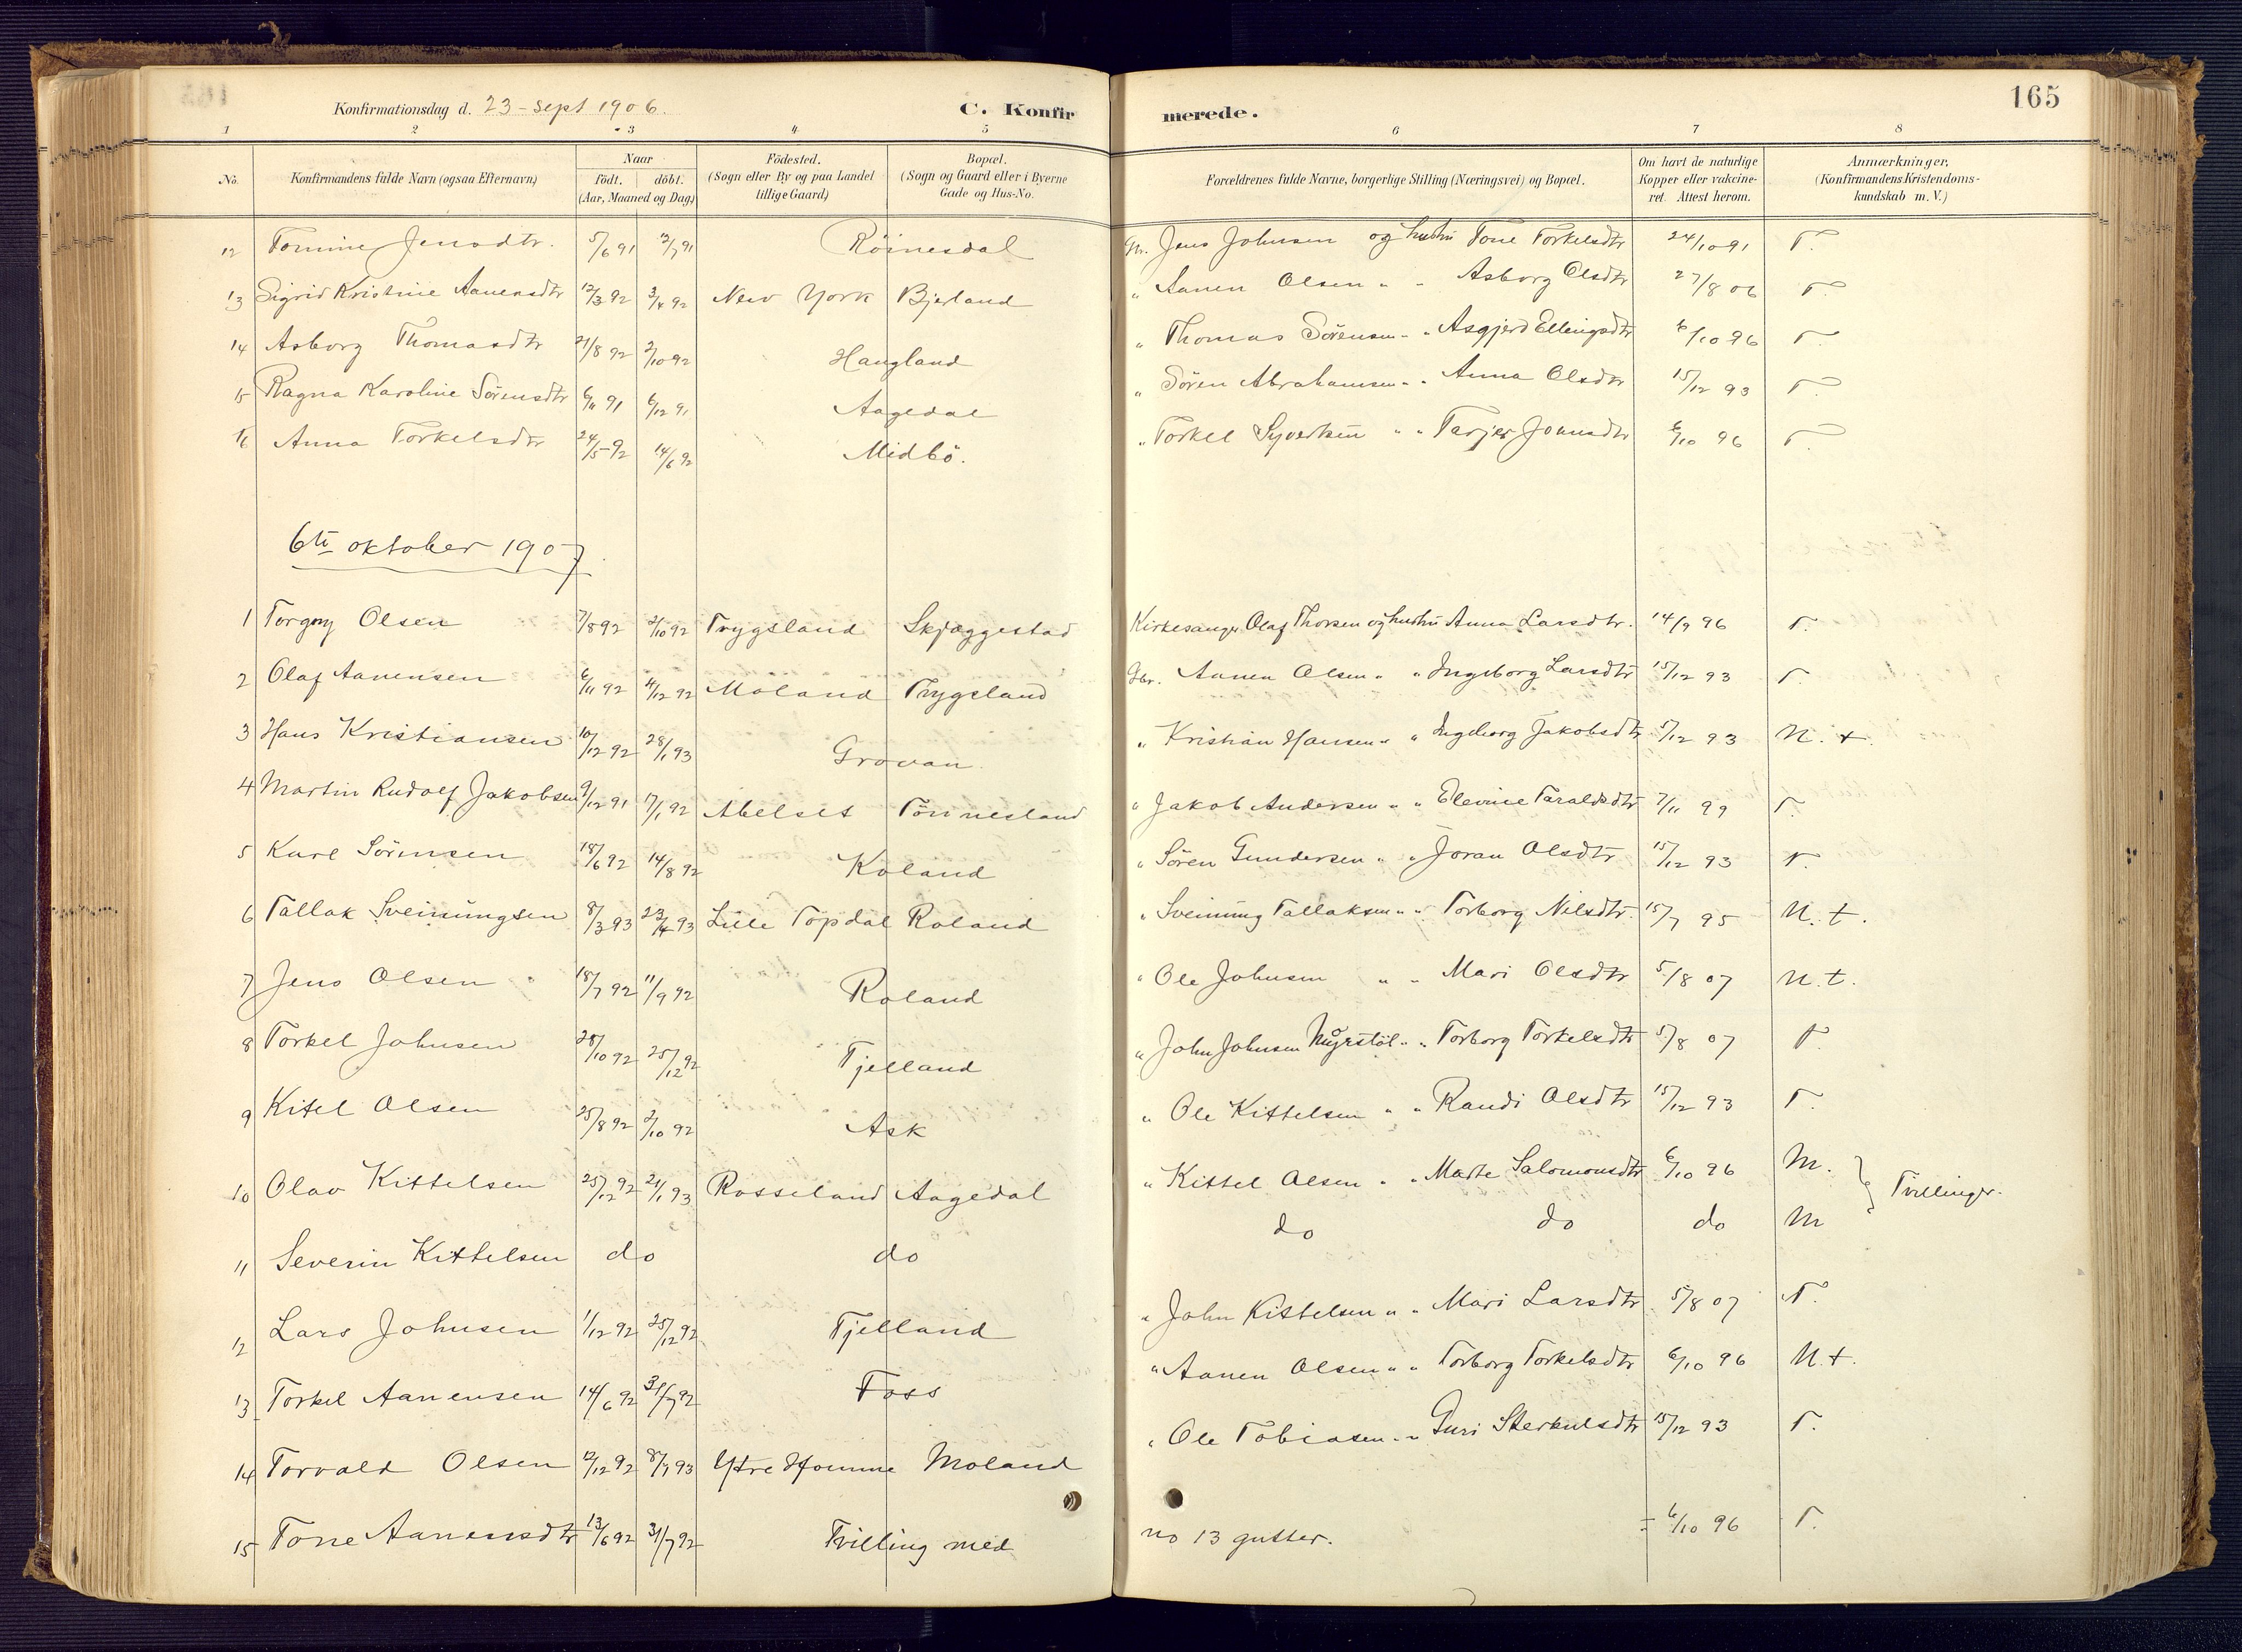 165
Konfirmationsdag d. 23-Sept 1906. C. Konfirmerede.
1 2 3 4 5 6 7 8
No. Konfirmandens fulde Navn (ogsaa Efternavn) Naar födt. döbt. (Aar, Maaned og Dag) Födested. (Sogn eller By og paa Landet tillige Gaard) Bopæl. (Sogn og Gaard eller i Byerne Gade og Hus-No. Forældrenes fulde Navne, borgerlige Stilling (Næringsvei) og Bopæl. Om havt de naturlige Kopper eller vakcineret. Attest herom. Anmærkninger, (Konfirmandens Kristendomskundskab m. V.)
12 Tomine Jensdtr. 5/6 91 12/7 91 Röinesdal Jens Johnsen og hustru Tone Torkelsdtr 24/10 91 T.
13 Sigrid Kristine Aanensdtr 12/3 92 3/4 92 New York Bjerland " Aanen Olsen " " Asborg Olsdtr 27/8 06 T.
14 Asborg Thomasdtr 21/8 92 2/10 92 Haugland " Thomas Sörensen - " Asgjerd Ellingsdtr 6/10 96 T.
15 Ragna Karoline Sörensdtr 6/11 91 6/12 91 Aagedal " Sören Abrahamsen " " Anna Olsdtr 15/12 93 T.
16 Anna Torkelsdtr 24/5 92 14/6 92 Midbö. " Torkel Syvertsen " " Tarjer Jonnsdtr 6/10 96 T.
6te oktober 1907
1 Torgny Olsen 7/8 92 2/10 92 Trygsland Skjæggestad Kirkesanger Olaf Thorsen og hustru Anna Larsdtr. 14/9 96 T.
2 Olaf Aanensen 6/11 92 4/12 92 Moland Trygsland Gbr. Aanen Olsen " " Ingeborg Larsdtr 15/12 93 T.
3 Hans Kristiansen 10/12 92 28/1 93 Grovan " Kristian Hansen " " Ingeborg Jakobsdtr 5/12 93 N. t.
4 Martin Rudolf Jakobsen 9/12 91 17/1 92 Abelset Tönnesland " Jakob Andersen " " Elevine Taraldsdtr 7/11 99 T.
5 Karl Sörensen 18/6 92 14/8 92 Koland " Sören Gundersen " " Joran Olsdtr 15/12 93 T.
6 Tallak Sveinungsen 8/3 93 23/4 93 Lille Topdal Roland " Sveinung Tallaksen " " Torborg Nilsdtr. 15/7 95 N. t.
7 Jens Olsen 18/7 92 11/9 92 Roland " Ole Johnsen " " Mari Olsdtr 5/8 07 N. t.
8 Torkel Johnsen 28/10 92 25/12 92 Tjelland " John Johnsen Myrstöl " " Torborg Torkelsdtr 5/8 07 T.
9 Kitel Olsen 25/8 92 2/10 92 Ask " Ole Kittelsen " " Randi Olsdtr 15/12 93 T.
10 Olav Kittelsen 25/12 92 21/1 93 Rosseland Aagedal " Kittel Olsen " " Marte Salomonsdtr 6/10 96 M. Tvillinger.
11 Severin Kittelsen do do do do do M
12 Lars Johnsen 1/12 92 25/12 92 Tjelland " John Kittelsen " " Mari Larsdtr 5/8 07 T.
13 Torkel Aanensen 14/6 92 31/7 92 Foss " Aanen Olsen " " Torborg Torkelsdtr 6/10 96 N. t.
14 Torvald Olsen 12/12 92 8/1 93 Ytre Homme Moland " Ole Tobiasen " " Guri Sterkulsdtr 15/12 93 T.
15 Tone Aanensdtr 13/6 92 31/7 92 Tvilling med no 13 gutter. 6/10 96 T.